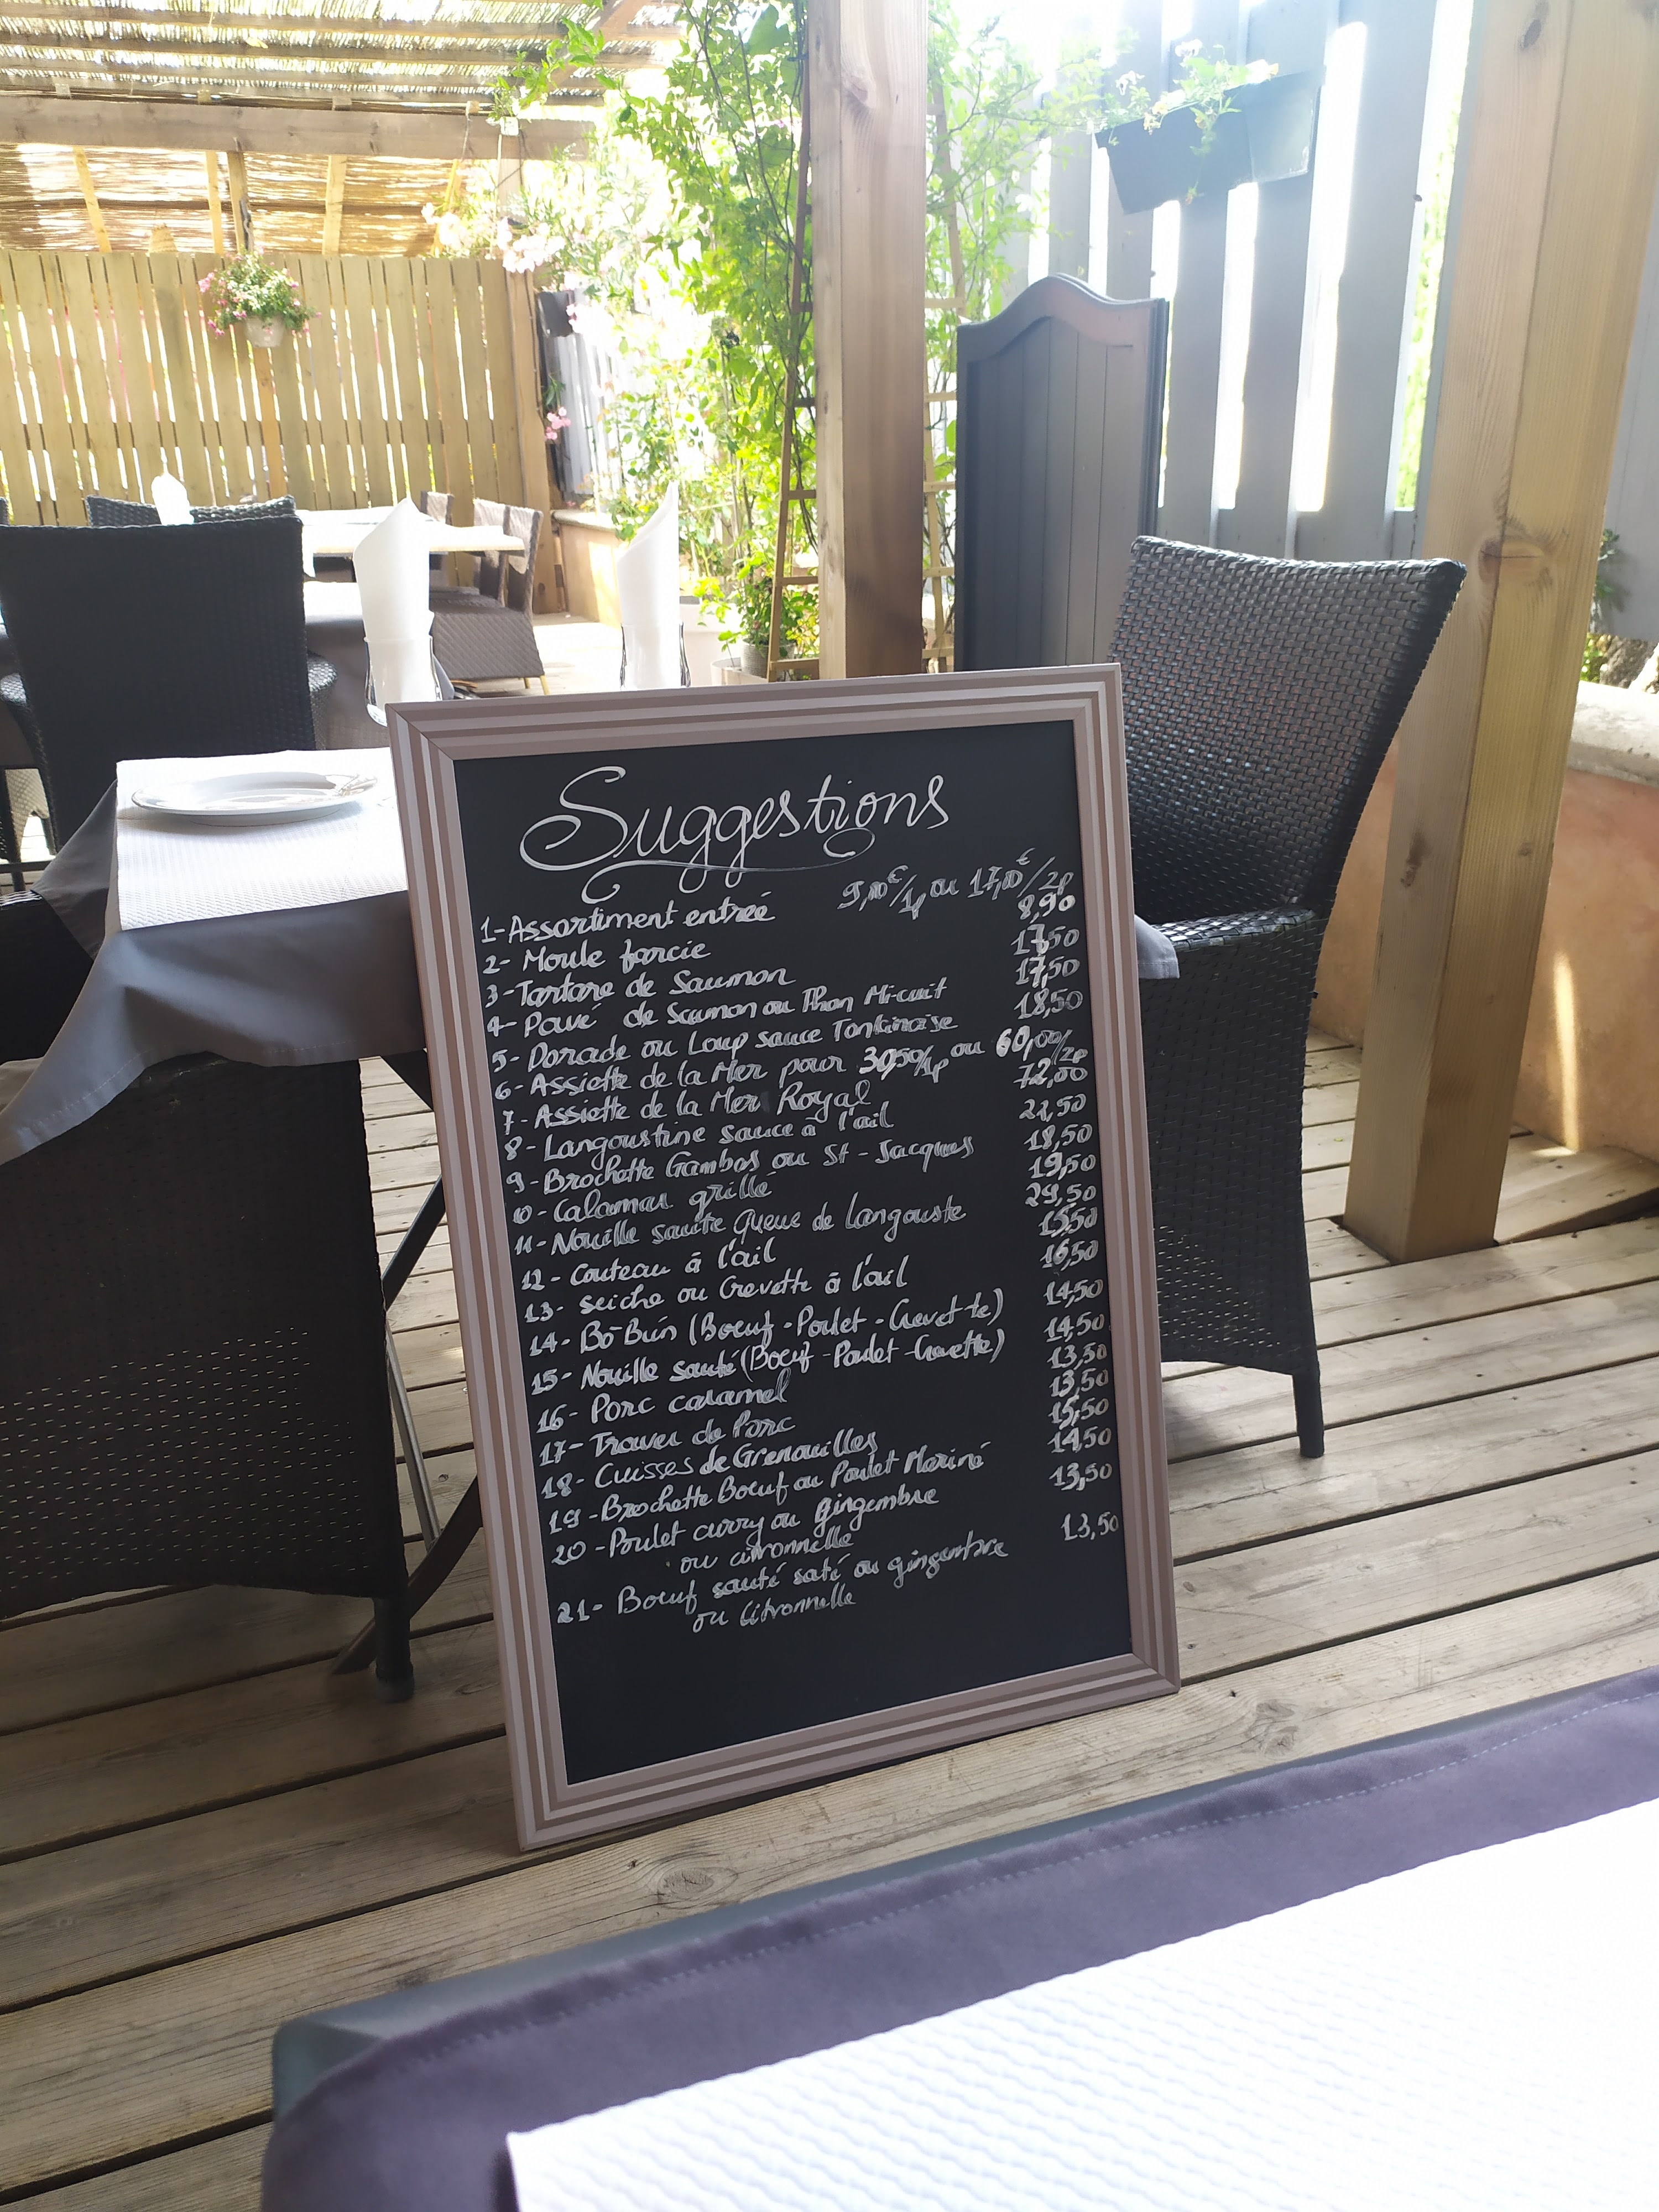 Suggestions
1- Assortiment entrée 9,00€/1p ou 17,00€/2p
2- Moule farcie 8,90
3- Tartare de Saumon 17,50
4- Pavé de Saumon ou Thon Mi-cuit 17,50
5- Dorade ou Loup sauce Tonkinoise 18,50
6- Assiette de la Mer pour 30,50/1p ou 60,00/2p
7- Assiette de la Mer Royal 72,00
8- Langoustine sauce à l'ail 21,50
9- Brochette Gambas ou St-Jacques 18,50
10- Calamar grillé 19,50
11- Nouille sautée Queue de langouste 29,50
12- Couteau à l'ail 15,50
13- Seiche ou Crevette à l'ail 16,50
14- Bò-Bún (Boeuf-Poulet-Crevette) 14,50
15- Nouille sauté (Boeuf-Poulet-Crevette) 14,50
16- Porc caramel 13,50
17- Traver de Porc 13,50
18- Cuisses de Grenouilles 15,50
19- Brochette Boeuf ou Poulet Mariné 14,50
20- Poulet curry ou gingembre 13,50
ou citronnelle
21- Boeuf sauté saté ou gingembre 13,50
ou citronnelle